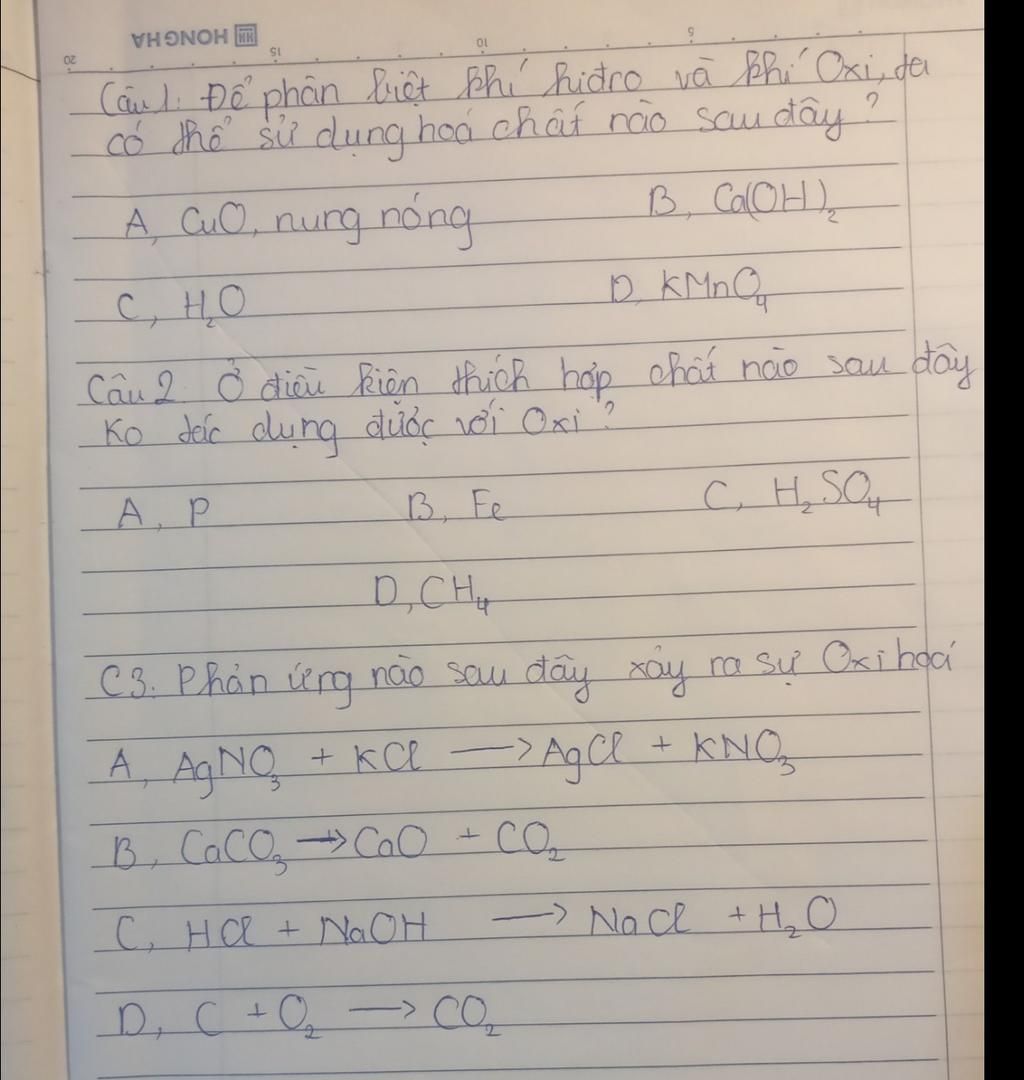 HONGHA
20 15 10 5
Câu1: Để phân biệt khí hiđro và khí Oxi, ta
có thể sử dụng hoá chất nào sau đây?
A, CuO, nung nóng B, Ca(OH)₂
C, H₂O D, KMnO₄
Câu 2. Ở điều kiện thích hợp chất nào sau đây
Ko tác dụng được với Oxi?
A, P B, Fe C, H₂SO₄
D, CH₄
C3. Phản ứng nào sau đây xảy ra sự Oxi hoá
A, AgNO₃ + KCl → AgCl + KNO₃
B, CaCO₃ → CaO + CO₂
C, HCl + NaOH → NaCl + H₂O
D, C + O₂ → CO₂